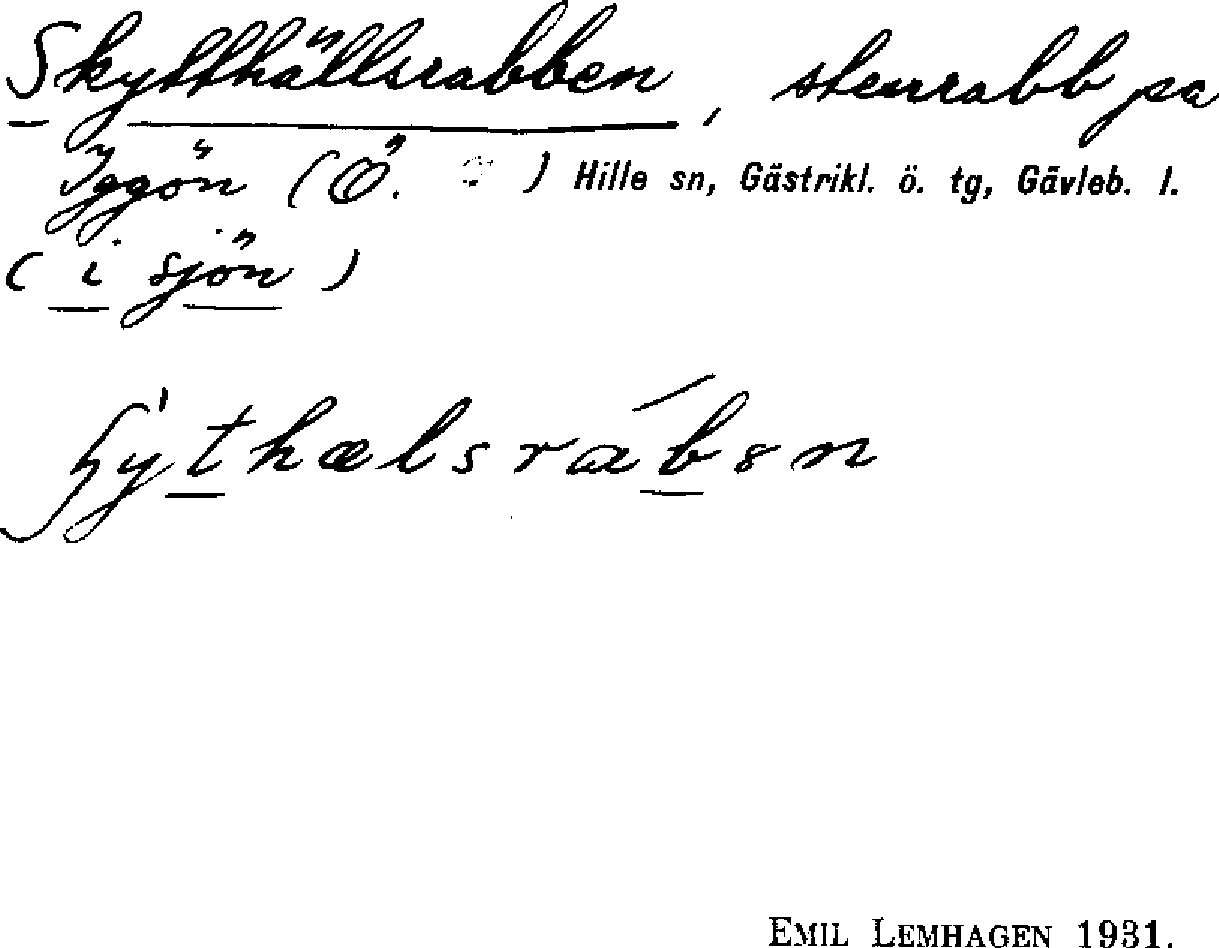 Skytthällsrabben, stenrabb pa
Iggön (Ö. ) Hille sn, Gästrikl. ö. tg, Gävleb. l.
(i sjön)
EMIL LEMHAGEN 1931.